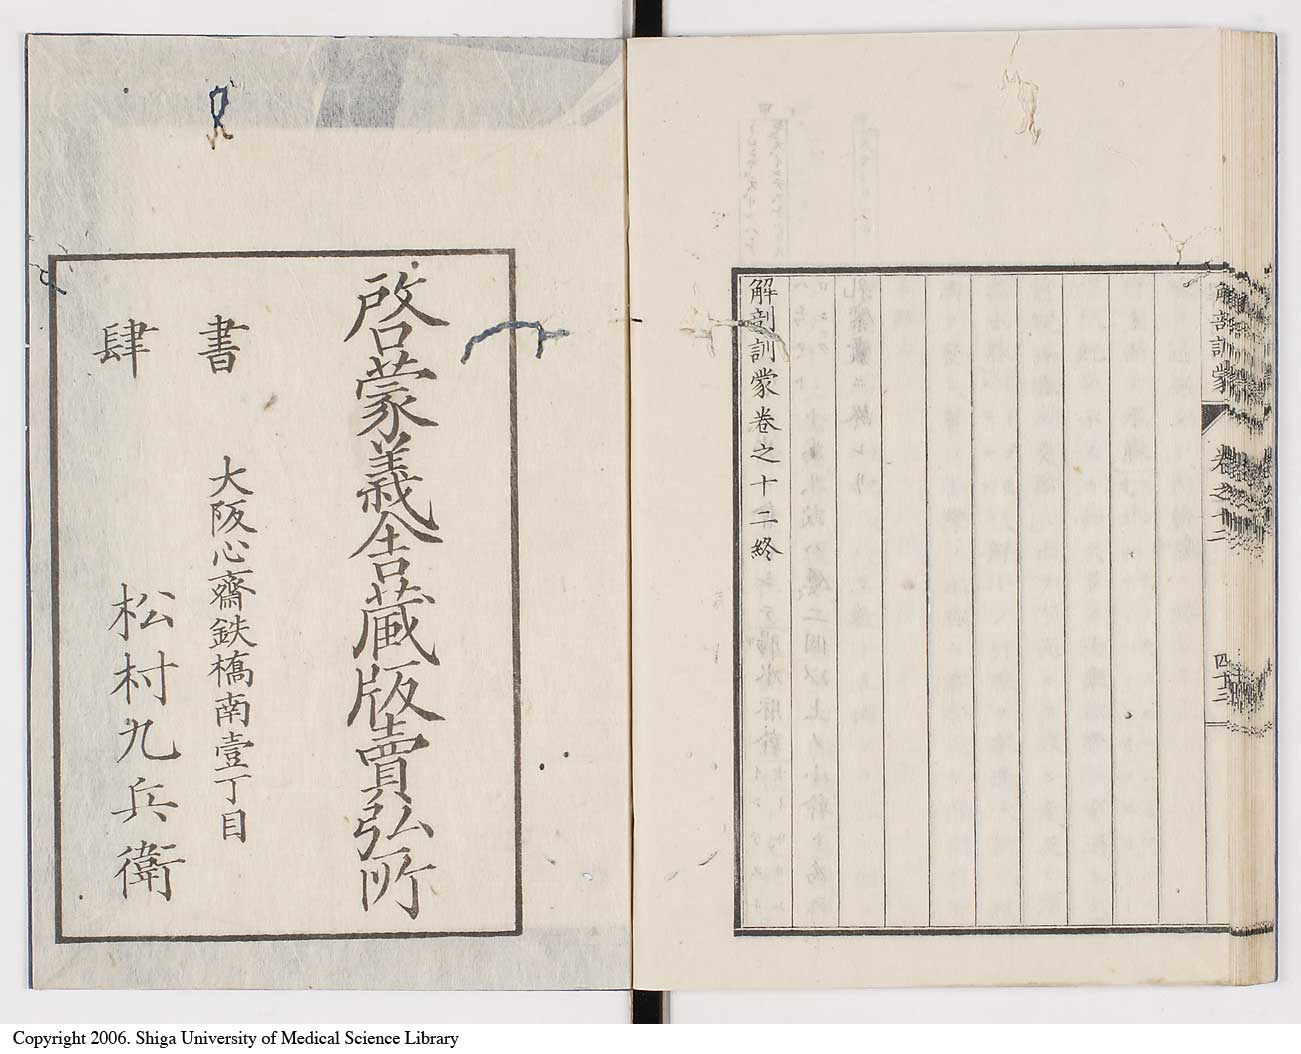 解剖訓蒙
卷之十二
四十三
解剖訓蒙卷之十二終
啓蒙義舎蔵版賣弘所
書肆
大阪心齋鉄橋南壹丁目
松村九兵衛
Copyright 2006. Shiga University of Medical Science Library